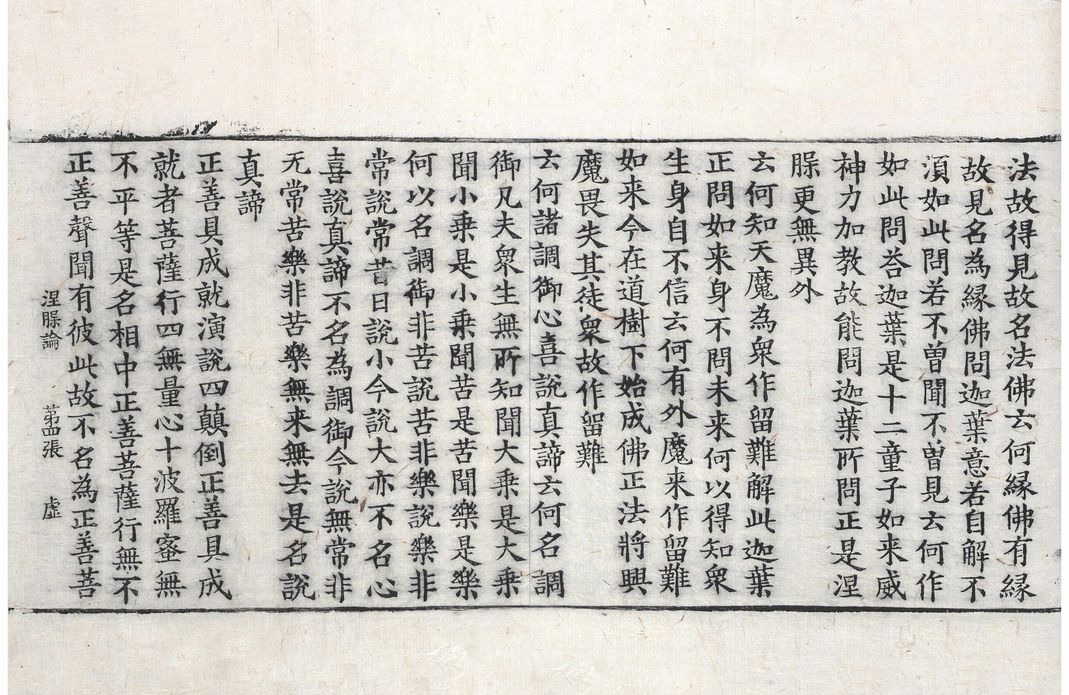 法故得見故名法佛云何縁佛有縁
故見名為縁佛問迦葉意若自解不
湏如此問若不曽聞不曽見云何作
如此問荅迦葉是十二童子如来威
神力加教故能問迦葉所問正是涅
槃更無異外
云何知天魔為衆作留難解此迦葉
正問如来身不問未来何以得知衆
生身自不信云何有外魔来作留難
如来今在道樹下始成佛正法將興
魔畏失其徒衆故作留難
云何諸調御心喜說真諦云何名調
御凡夫衆生無所知聞大乗是大乗
聞小乗是小乗聞苦是苦聞樂是樂
何以名調御非苦說苦非樂說樂非
常說常昔日說小今說大亦不名心
喜說真諦不名為調御今說無常非
无常苦樂非苦樂無来無去是名說
真諦
正善具成就演說四顛倒正善具成
就者菩薩行四無量心十波羅蜜無
不平等是名相中正善菩薩行無不
正善聲聞有彼此故不名為正善菩
涅槃論 苐四張 虛